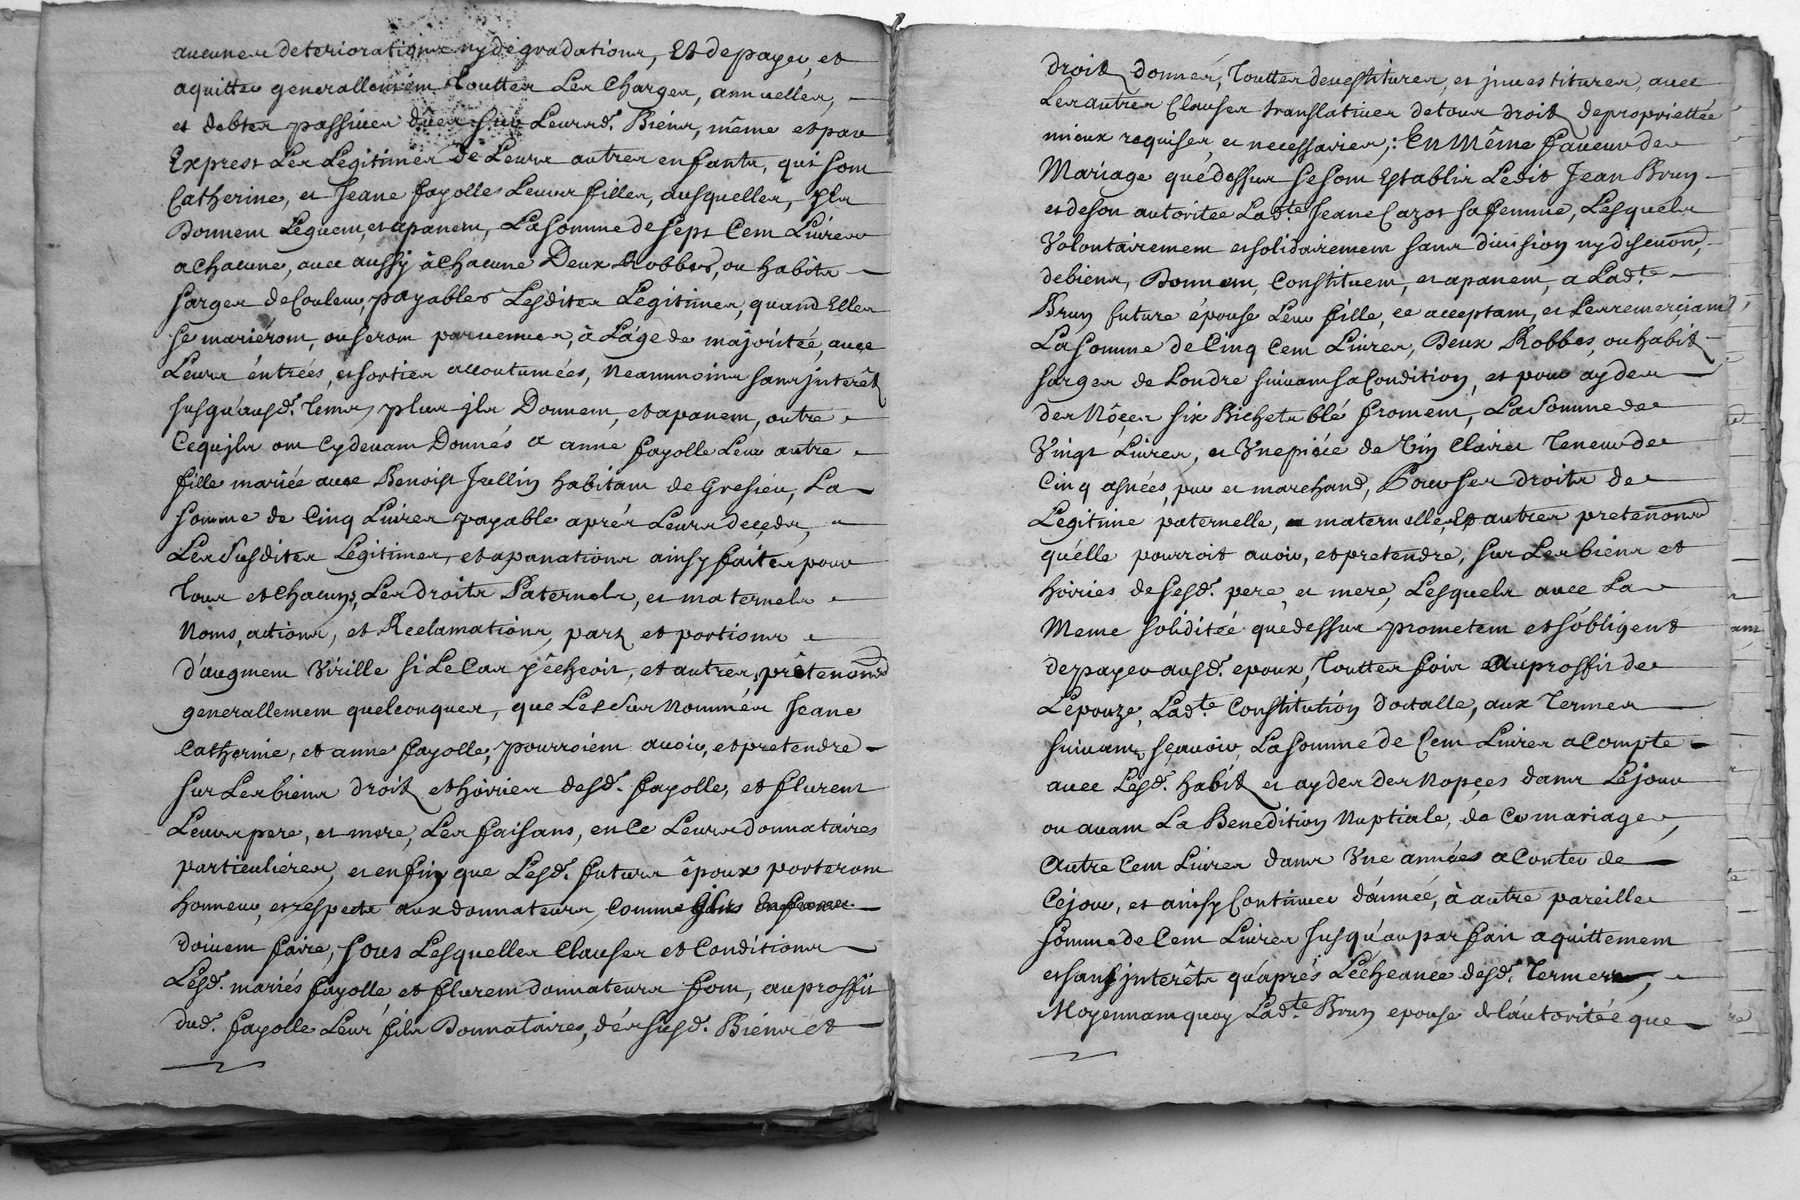 aucunes deteriorations ny degradations, Et de payer, et
aquitter generallement Touttes Les Charges, annuelles,
et debtes passives dües sur Leursd. Biéns, même et par
Exprest Les Legitimes de Leurs autres enfants, qui sont
Catherine, et Jeane fayolles Leurs filles, ausquelles, Ils
Donnent Leguent, et apanent, La somme de sept Cent Livres
a chacune, avec aussÿ à chacune Deux Robbes, ou habits
sarges de Couleur, payables Lesdites Legitimes, quand Elles
se mariéront, ou seront parvenues, à L'áge de majoritée, avec
Leurs éntrées, et sorties accoutumées, Neanmoins sans jnterêt
jusqu'ausd. Tems, plus jls Donnent, et apanent, outre
Cequ'jls ont Cy devant Donnés a anne fayolle Leur autre
fille mariée avec Benoist Jullin habitant de Gresieu, La
somme de Cinq Livres payable aprés Leurs deceds,
Les Susdites Légitimes, et apanations ainsy faites pour
Tous et chacuns, Les droits Paternels, et maternels
Noms, actions, et Reclamations, part et portions
d'augment Virille si Le Cas y êcheoit, et autres, prêtenõns
generallement quelconques, que Les Sus Nommés Jeane
Catherine, et anne fayolle, pourroient avoir, et pretendre
sur Les biens droit et hóiries desd. fayolle, et flurent
Leurs pere, et mere, Les faisans, en Ce Leurs donnataires
particuliéres, et enfin que Lesd. futurs époux porteront
honneur, et respects aux donnateurs, Comme
doivent faire, sous Lesquelles Clauses et Conditions
Lesd. mariés fayolle et flurent donnateurs font, au proffit
dud. fayolle Leur fils Donnataires, dés susd. Biéns et
droit donnés, Touttes devestitures, et jnvestitures, avec
Les autres Clauses translatives de tous droit de proprietée
mieux requises, et necessaires; En Même faveur de
Mariage que dessus se sont Establis Ledit Jean Brun
et de son autoritée Ladte. Jeane Cazot sa femme, Lesquels
Volontairement et solidairement sans division ny discuõn,
de biens, Donnent, Constituent, et apanent, a Ladte.
Brun future épouse Leur fille, ce acceptant, et Les remerciant,
La somme de Cinq Cent Livres, Deux Robbes, ou habit
sarges de Londre suivant sa Condition, et pour ayder
des Nôces six Bichets blé froment, La somme de
Vingt Livres, et Vne piéce de Vin Clairet Teneur de
Cinq asnées, pur et marchand, Pour ses droits de
Legitime paternelle, et maternelle, Et autres pretenõns
qu'elle pourroit avoir, et pretendre, sur Les biens et
hóiries de sesd. pere, et mere, Lesquels avec La
Meme soliditée que dessus prometent et s'obligent
de payer ausd. epoux, Toutte fois Au proffit de
L'epouze, Ladte. Constitution dotalle, aux Termes
suivans, sçavoir, La somme de Cent Livres a compte
avec Lesd. habit et aydes des Nopces dans Le jour
ou avant La Benedition Nuptiale, de Ce mariage,
Autre Cent Livres dans Vne années a Conter de
Ce jour, et ainsy Continuer d'année, à autre pareille
somme de Cent Livres Jusqu'au parfait aquittement
et sans jnterêts qu'aprés L'echeance desd. Termes,
Moyennant quoy Ladte. Brun epouse de l'autoritée que